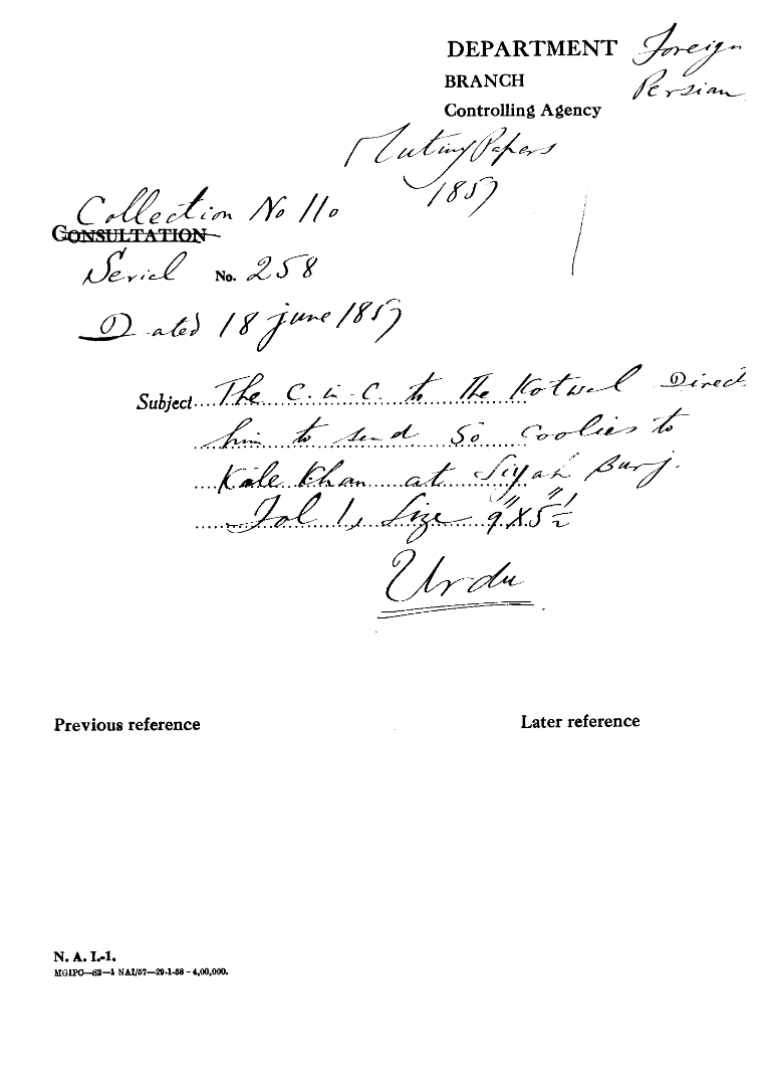 DEPARTMENT Foreign
BRANCH Persian
Controlling Agency
Mutiny Papers
1857
Collection No 110
CONSULTATION
Serial No. 258
Dated 18 june 1857
Subject The C. in. C. to The Kotwal Direct
him to send 50 Coolies to
Kale Khan at Siyah Burj.
Fol 1, Size 9" X 5" ½
Urdu
Previous reference
Later reference
N. A. I.-1.
MGIPO—82—4 NAI/57—29-1-58—4,00,000.